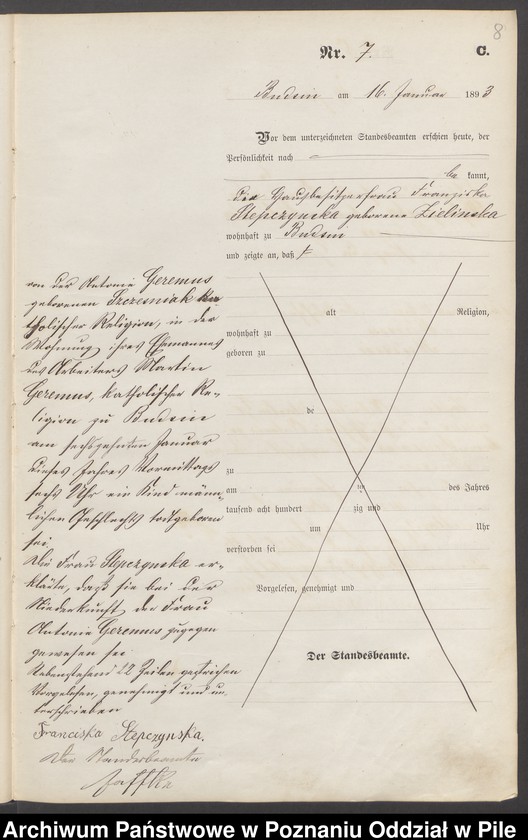 8
Nr. 7. C.
Budsin am 16. Januar 1893
Vor dem unterzeichneten Standesbeamten erschien heute, der
Persönlichkeit nach
be kannt,
die Hausbesitzerfrau Franziska
Stepczynska geborene Zielinska
wohnhaft zu Budsin
und zeigte an, daß
von der Antonie Geremus
geborenen Szczesniak ka-
tholischer Religion, in der
Wohnung ihres Ehemannes
des Arbeiters Martin
Geremus, katholischer Re-
ligion zu Budsin
am sechszehnten Januar
dieses Jahres Vormittags
sechs Uhr ein Kind männ-
lichen Geschlechts todtgeboren
sei.
Die Frau Stepczynska er-
klärte, daß sie bei der
Niederkunft der Frau
Antonie Geremus zugegen
gewesen sei
Nebenstehend 12 Zeilen gestrichen
Vorgelesen, genehmigt und un-
terschrieben
Franciska Stepczynska.
Der Standesbeamte
alt Religion,
wohnhaft zu
geboren zu
de
zu
am ten des Jahres
tausend acht hundert zig und
um Uhr
verstorben sei
Vorgelesen, genehmigt und
Der Standesbeamte.
Archiwum Państwowe w Poznaniu Oddział w Pile